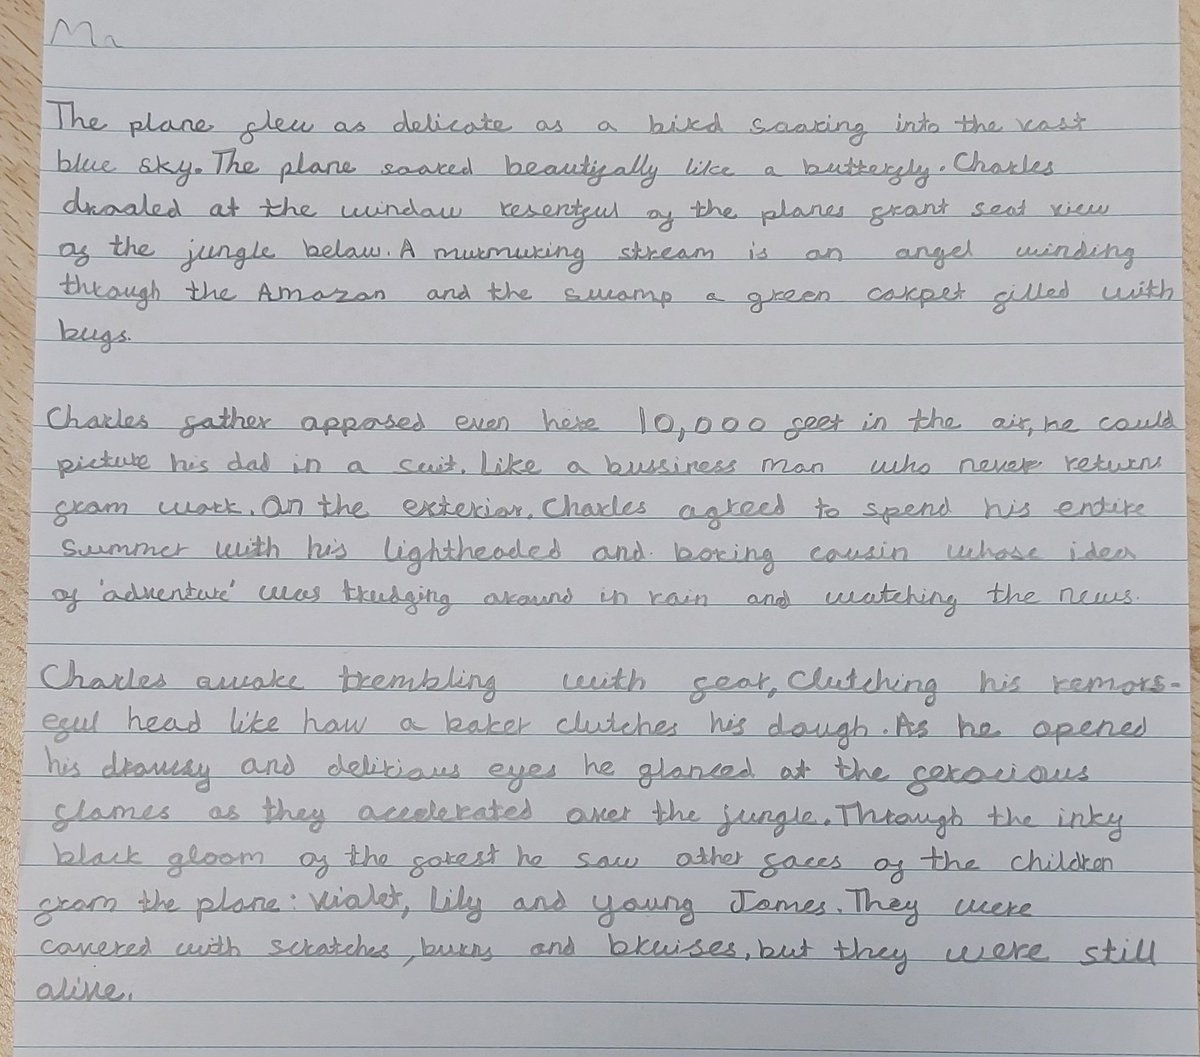 The plane flew as delicate as a bird soaring into the vast
blue sky. The plane soared beautifully like a butterfly. Charles
drooled at the window resentful of the planes front seat view
of the jungle below. A murmuring stream is an angel winding
through the Amazon and the swamp a green carpet filled with
bugs.
Charles father opposed even here 10,000 feet in the air, he could
picture his dad in a suit. Like a bussiness man who never returns
from work. On the exterior, Charles agreed to spend his entire
summer with his lightheaded and boring cousin whose idea
of 'adventure' was trudging around in rain and watching the news.
Charles awoke trembling with fear, clutching his remors-
eful head like how a baker clutches his dough. As he opened
his drowsy and delirious eyes he glanced at the ferocious
flames as they accelerated over the jungle. Through the inky
black gloom of the forest he saw other faces of the children
from the plane: Violet, Lily and young James. They were
covered with scratches, burns and bruises, but they were still
alive.